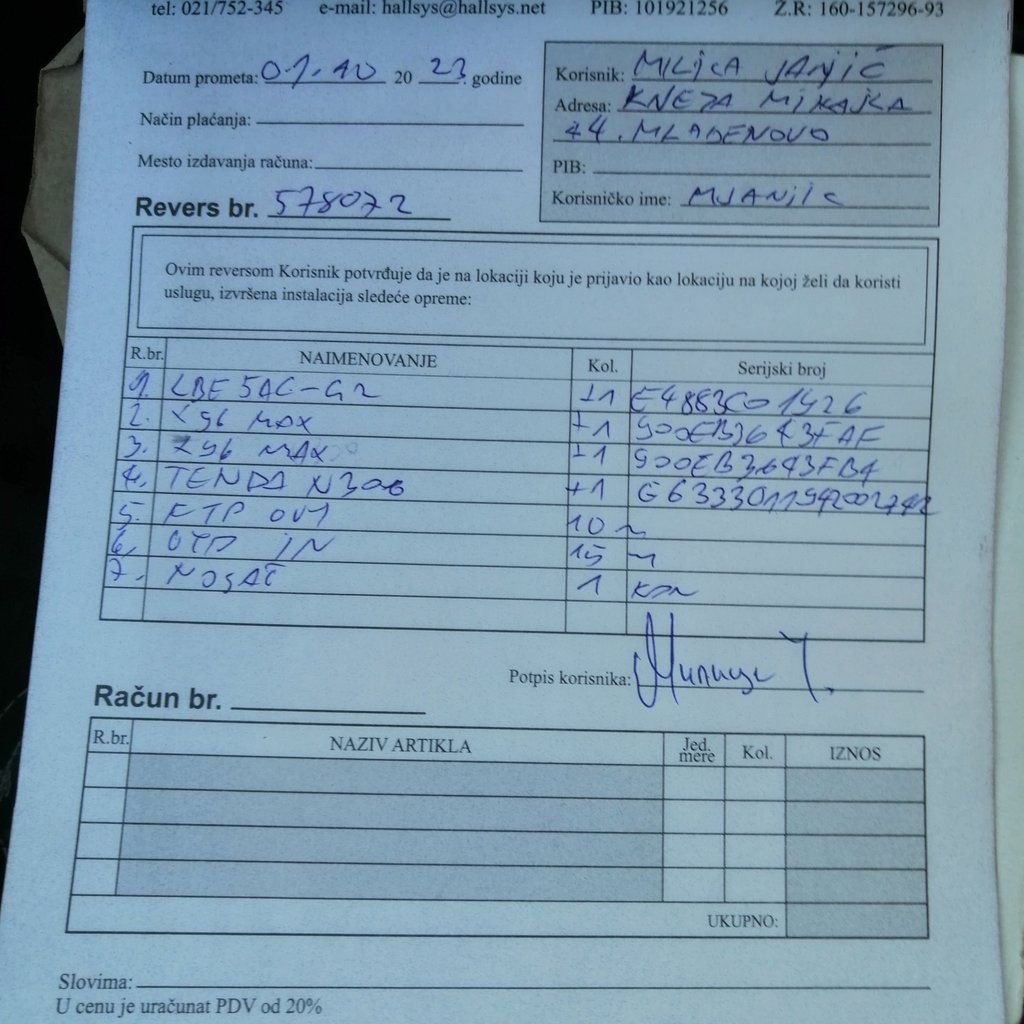 tel: 021/752-345 e-mail: hallsys@hallsys.net PIB: 101921256 Ž.R: 160-157296-93
Datum prometa: 01.10 20 23. godine
Način plaćanja:
Mesto izdavanja računa:
Revers br. 578072
Korisnik: MILICA JANJIĆ
Adresa: KNEZA MIHAJLA
44. MLADENOVO
PIB:
Korisničko ime: MJANJIC
Ovim reversom Korisnik potvrđuje da je na lokaciji koju je prijavio kao lokaciju na kojoj želi da koristi
uslugu, izvršena instalacija sledeće opreme:
R.br. NAIMENOVANJE Kol. Serijski broj
1. LBE 5AC-G2 +1 E4883C01426
2. X96 MAX +1 900EB3643FAF
3. X96 MAX +1 900EB3643FB4
4. TENDA N300 +1
5. FTP OUT 10 m
6. UTP IN 15 m
7. NOSAČ 1 kom
Potpis korisnika: Милица Ј.
Račun br.
R.br. NAZIV ARTIKLA Jed. mere Kol. IZNOS
UKUPNO:
Slovima:
U cenu je uračunat PDV od 20%